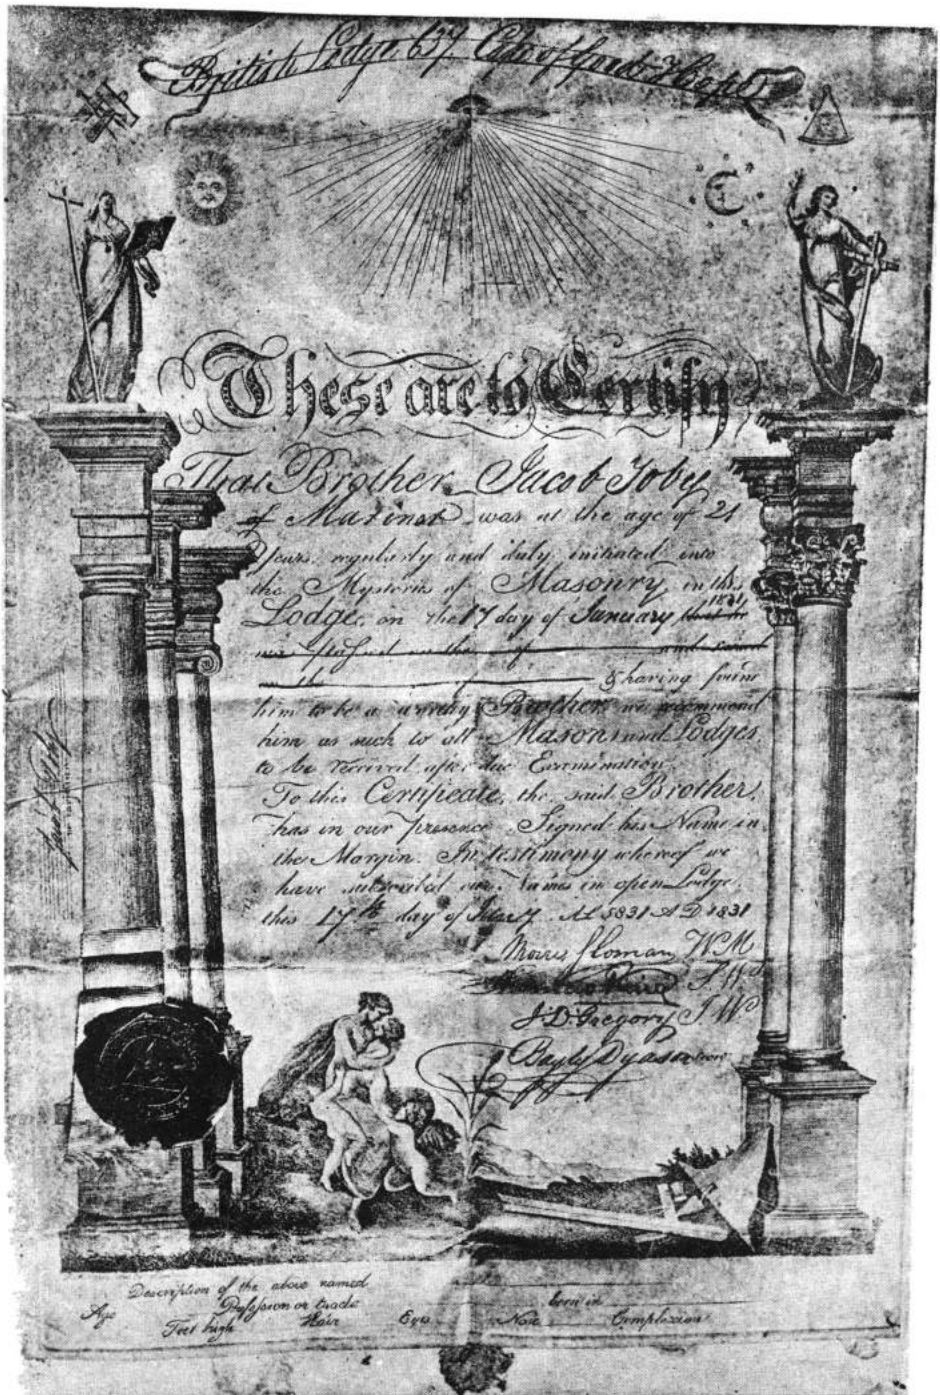 British Lodge 637 Cape of Good Hope
These are to Certify
That Brother Jacob Toby
of was at the age of 21
Years regularly and duly initiated into
the Mysteries of Masonry in this
Lodge, on the 17 day of January 1831
on the of and
on the of & having found
him to be a worthy Brother we recommend
him as such to all Masons and Lodges
to be received after due Examination.
To this Certificate, the said Brother,
has in our presence Signed his Name in
the Margin. In testimony whereof we
have subscribed our Names in open Lodge
this 17th day of A L 5831 A D 1831
Morris Sloman W M
S W
J. D. Gregory J W
Bayly Dyason
Jacob Toby
Description of the above named
Age Profession or trade born in
Feet high Hair Eyes Nose Complexion